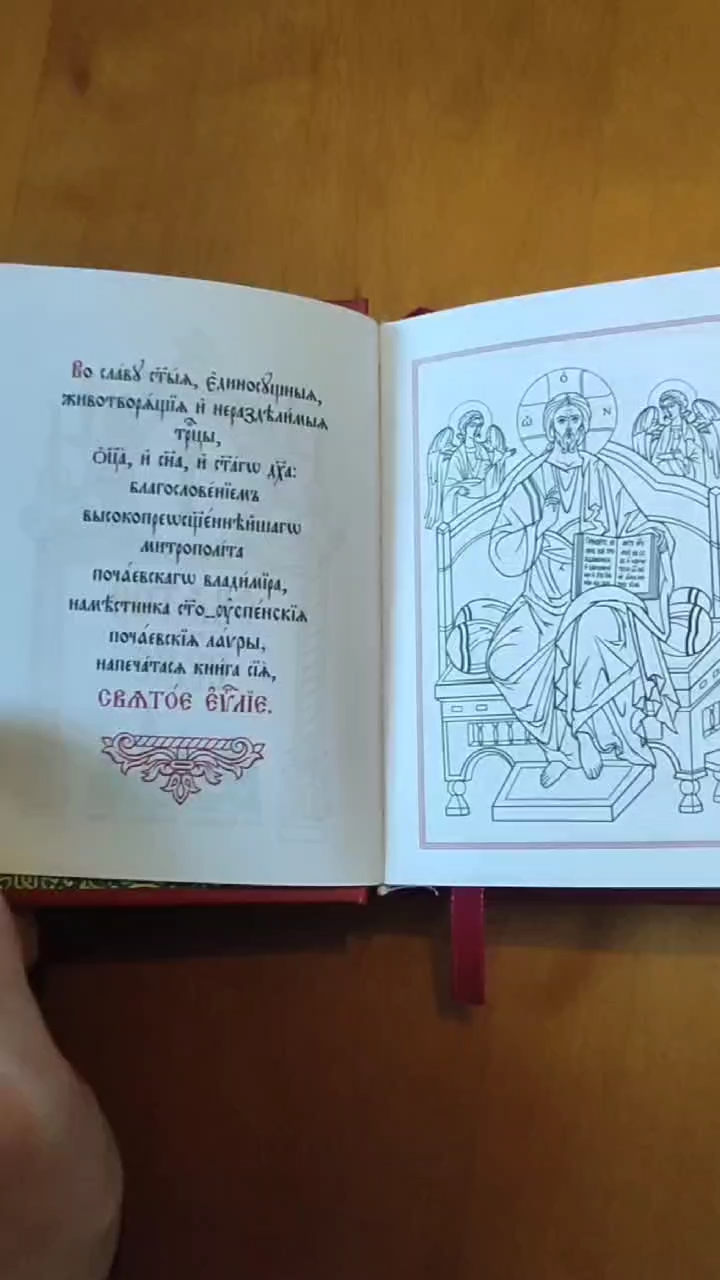 Во сла́вꙋ ст҃ы́ѧ, є҆диносꙋ́щныѧ,
животворѧ́щїѧ и҆ нераздѣли́мыѧ
трⷪ҇цы,
ѻ҆ц҃а̀, и҆ сн҃а, и҆ ст҃а́гѡ дх҃а:
благослове́нїемъ
высокопреѡсщ҃е́ннѣйшагѡ
митрополі́та
поча́евскагѡ влади́мїра,
намѣ́стника ст҃о_ᲂу҆спе́нскїѧ
поча́евскїѧ ла́ѵры,
напеча́тасѧ кни́га сїѧ̀,
СВѦТО́Е Є҆Ѵⷢ҇ЛЇЕ.
О
Ѡ
N